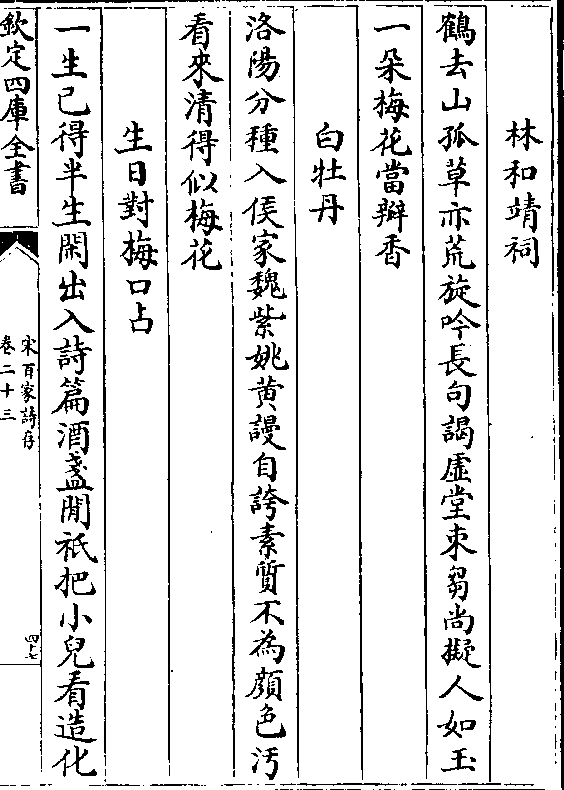 林和靖祠
鶴去山孤草亦荒旋吟長句謁虛堂束芻尚擬人如玉
一朵梅花當辦香
白牡丹
洛陽分種入侯家魏紫姚黄謾自誇素質不為顔色汚
看來清得似梅花
生日對梅口占
一生已得半生閑出入詩篇酒盞閒祇把小兒看造化
欽定四庫全書
宋百家詩存
卷二十三
四十七